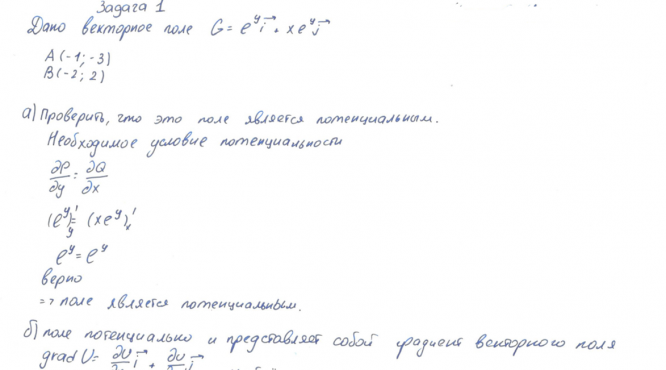 Задача 1
Дано векторное поле G = e^y i⃗ + x e^y j⃗
A(-1; -3)
B(-2; 2)
а) Проверить, что это поле является потенциальным.
Необходимое условие потенциальности
∂P/∂y = ∂Q/∂x
(e^y)'_y = (xe^y)'_x
e^y = e^y
верно
=> поле является потенциальным.
б) поле потенциально и представляет собой градиент векторного поля
grad U = ∂U i⃗ + ∂U j⃗